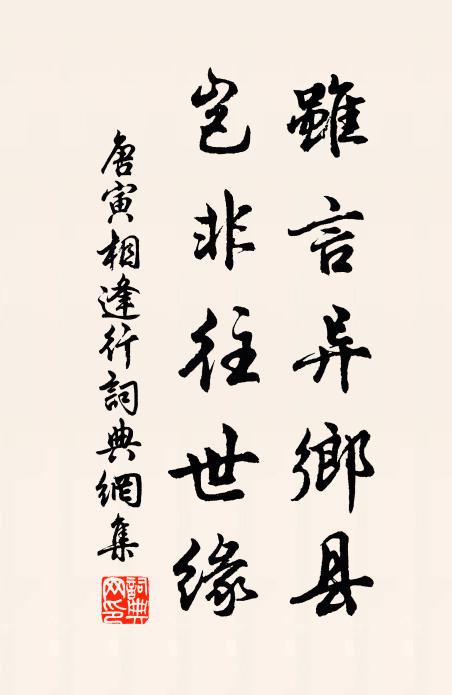 雖言异鄉县
岂非往世缘
唐寅相逢行詞典網集
詞典网印